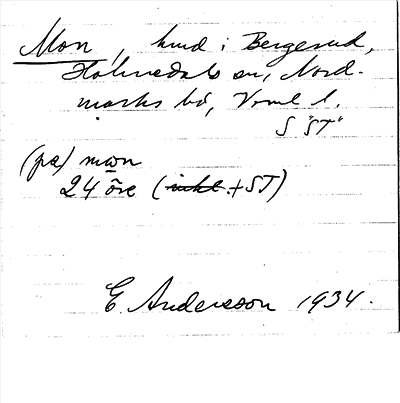 Mon, hmd i Bergerud,
Holmedals sn, Nord-
marks hd, Vrml l.
S "ST"
(pa) mωn
24 öre (inkl. + ST)
E. Andersson 1934.